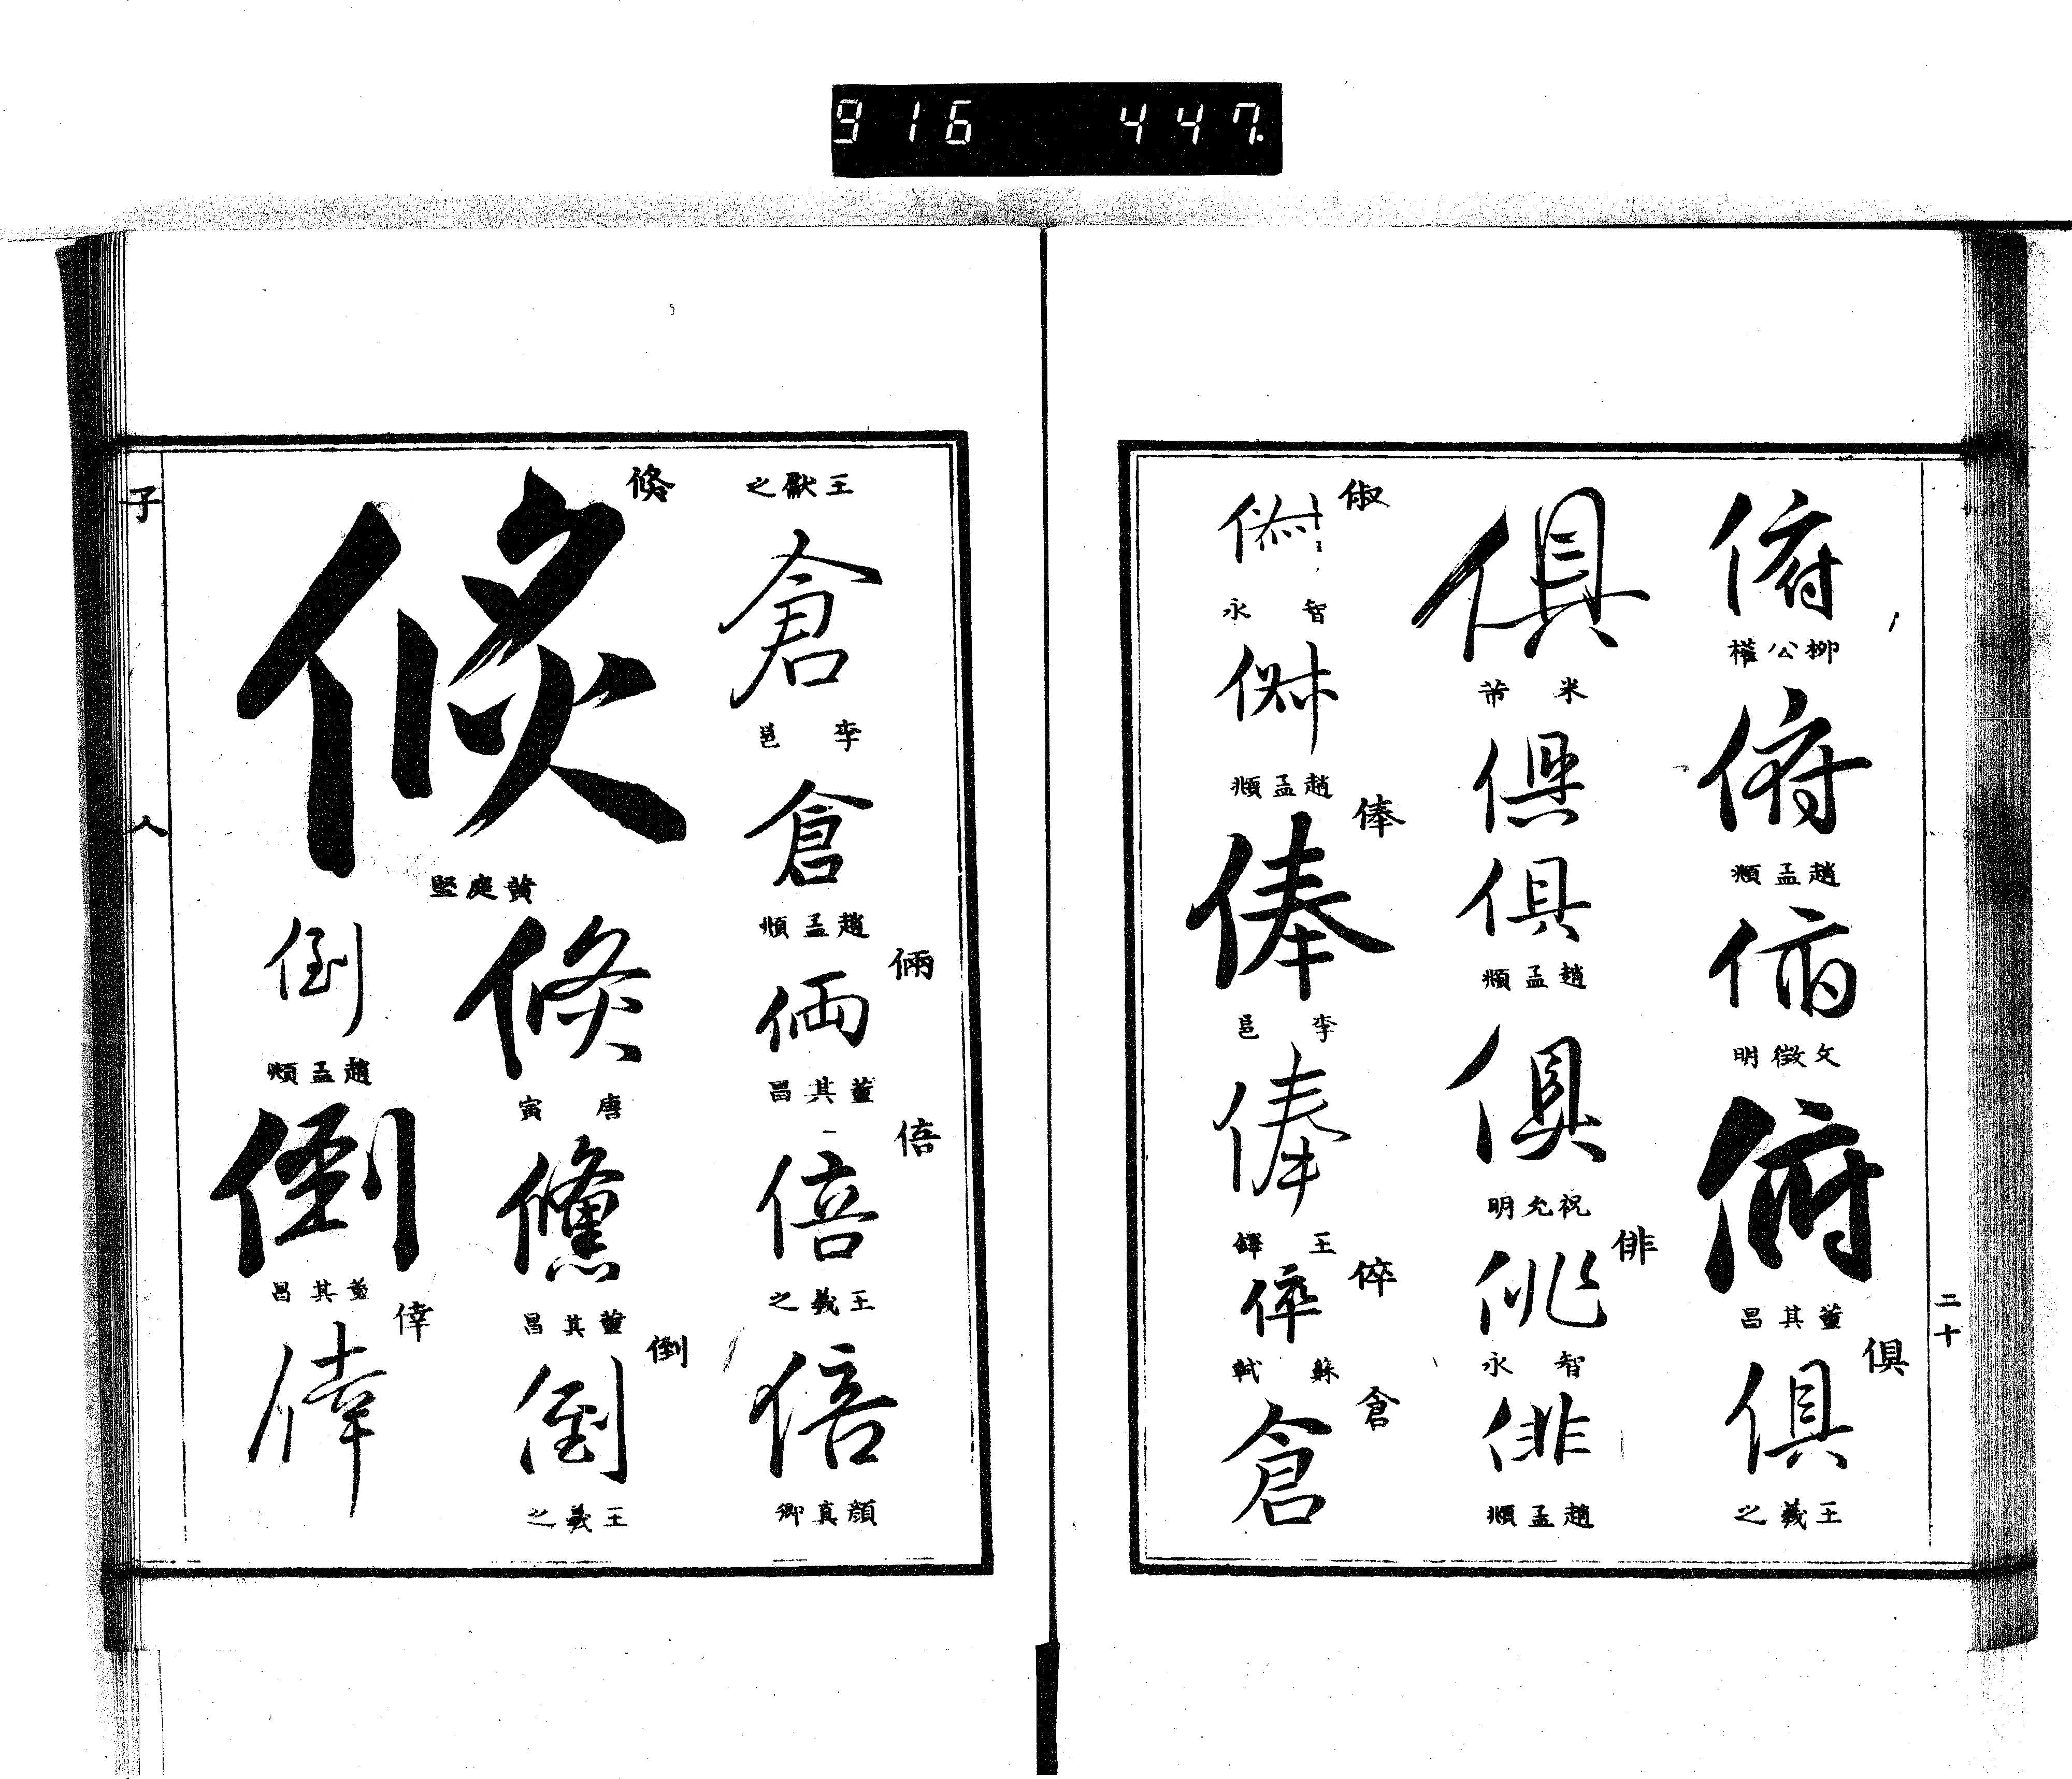 916 447
二十
俯
柳公權
俯
趙孟頫
俯
文徵明
俯
董其昌
俱
俱
王羲之
俱
米芾
俱
俱
趙孟頫
俱
祝允明
俳
俳
智永
俳
趙孟頫
俶
俶
智永
俶
趙孟頫
俸
俸
李邕
俸
王鐸
倅
倅
蘇軾
倉
倉
王獻之
倉
李邕
倉
趙孟頫
倆
倆
董其昌
倍
倍
王羲之
倍
顏真卿
倏
倏
黃庭堅
倏
唐寅
儵
董其昌
倒
倒
王羲之
倒
趙孟頫
倒
董其昌
倖
倖
子
人